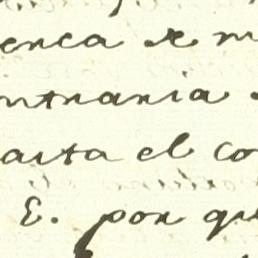 enca de m
ntraria
arta el co
E. por qu